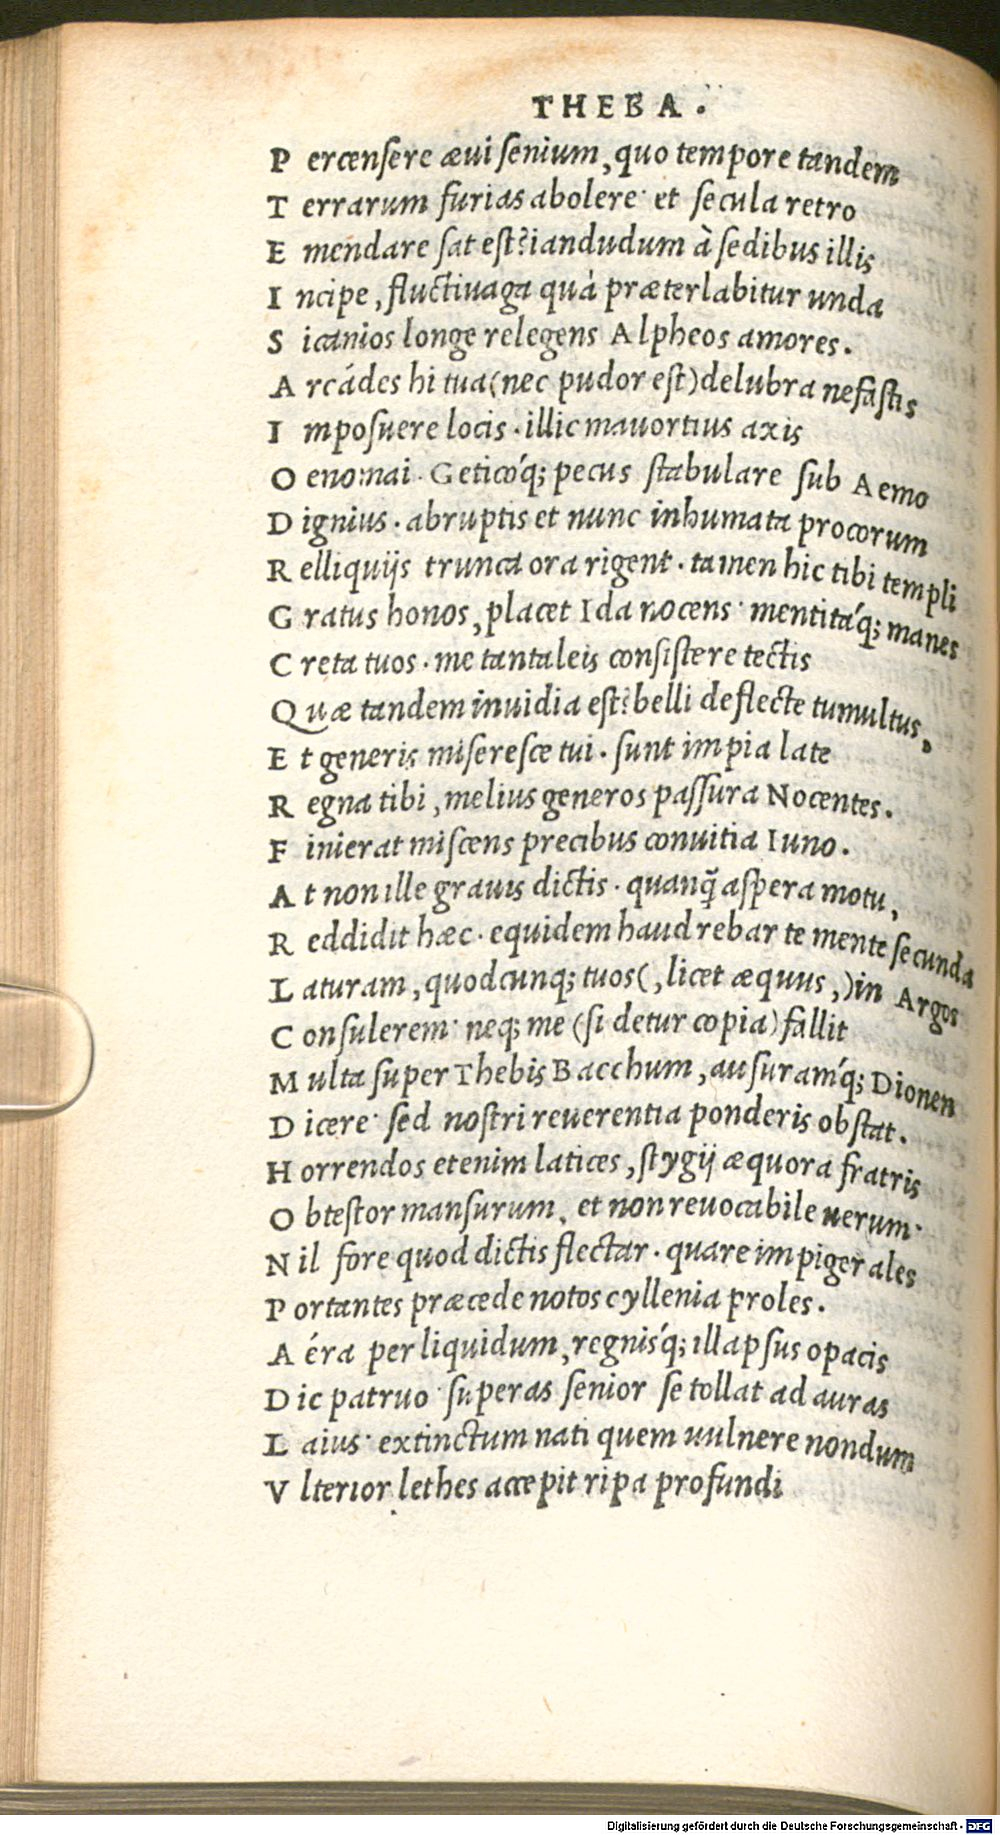 THEBA.
P ercensere æui senium, quo tempore tandem
T errarum furias abolere· et secula retro
E mendare sat est? iandudum à sedibus illis
I ncipe, fluctiuaga quà præterlabitur unda
S icanios longe relegens Alpheos amores.
A rcádes hi tua (nec pudor est) delubra nefastis
I mposuere locis· illic mauortius axis
O enomai· Geticóq; pecus stabulare sub Aemo
D ignius· abruptis et nunc inhumata procorum
R elliquijs trunca ora rigent· tamen hic tibi templi
G ratus honos, placet Ida nocens· mentitáq; manes
C reta tuos· me tantaleis consistere tectis
Q uæ tandem inuidia est? belli deflecte tumultus,
E t generis miseresce tui· sunt impia late
R egna tibi, melius generos passura Nocentes.
F inierat miscens precibus conuitia Iuno.
A t non ille grauis dictis· quanq̃ aspera motu,
R eddidit hæc· equidem haud rebar te mente secunda
L aturam, quodcunq; tuos (, licet æquus,) in Argos
C onsulerem· neq; me (si detur copia) fallit
M ulta super Thebis Bacchum, ausuramq́; Dionen
D icere· sed nostri reuerentia ponderis obstat.
H orrendos etenim latices, stygij æquora fratris
O btestor mansurum, et non reuocabile uerum·
N il fore quod dictis flectar· quare impiger ales
P ortantes præcede notos cyllenia proles.
A éra per liquidum, regnisq́; illapsus opacis
D ic patruo· superas senior se tollat ad auras
L aius· extinctum nati quem uulnere nondum
V lterior lethes accepit ripa profundi
Digitalisierung gefördert durch die Deutsche Forschungsgemeinschaft - DFG